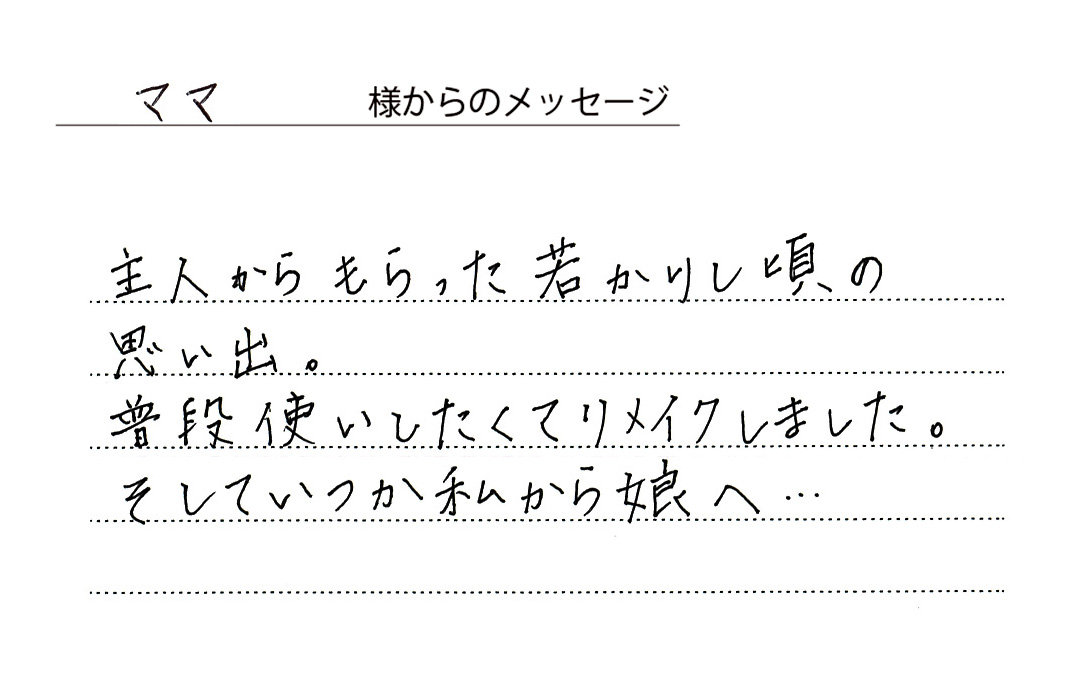 ママ 様からのメッセージ
主人からもらった若かりし頃の
思い出。
普段使いしたくてリメイクしました。
そしていつか私から娘へ…